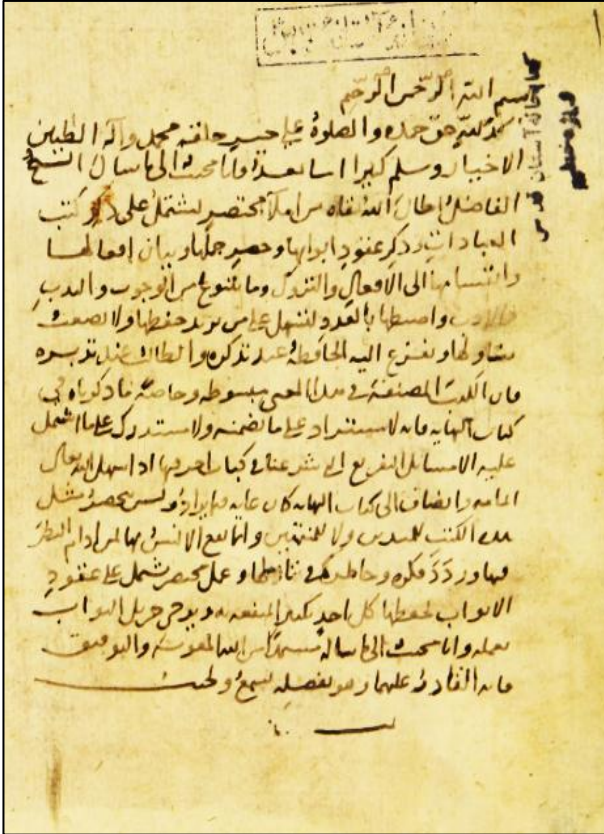 بسم الله الرحمن الرحيم
الحمد لله حق حمده والصلوة على خير خلقه محمد وآله الطيبين
الاخيار وسلم كثيرا اما بعد فانا مجيب الى ما سال الشيخ
الفاضل اطال الله بقاه من املآ مختصر يشتمل على ذكر كتب
العبادات وذكر عقود ابوابها وحصر جملها وبيان افعالها
وانقسامها الى الافعال والتروك وما يتنوع من الوجوب والندب
والادب واضبطها بالعدد ليسهل على من يريد حفظها ولا يصعب
تناولها ويفزع اليه الحافظ عند تذكره والطالب عند تدبره
فان الكتب المصنفة في هذا المعنى مبسوطة وخاصة ما ذكرناه في
كتاب النهاية فانه لا يستزاد على ما تضمنه ولا يستدرك على ما اشتمل
عليه الا مسائل التفريع التي شرعنا في كتاب اخر فيها اذا سهل الله تعالى
اتمامه وانضاف الى كتاب النهاية كان غاية فيما يراد وليس يحصر مثل
هذه الكتب للمبتدين ولا للمنتهين وانما يقع الانس بها لمن ادام النظر
فيها وردد فكره وخاطره في تاملها وعمل مختصر يشتمل على عقود
الابواب يحفظها كل احد يكثر المنفعة به ويرجى جزيل الثواب
بعمله وانا مجيب الى ما ساله مستمدا من الله المعونة والتوفيق
فانه القادر عليهما وهو بفضله يسمع ويجيب
كتابخانه آستان قدس